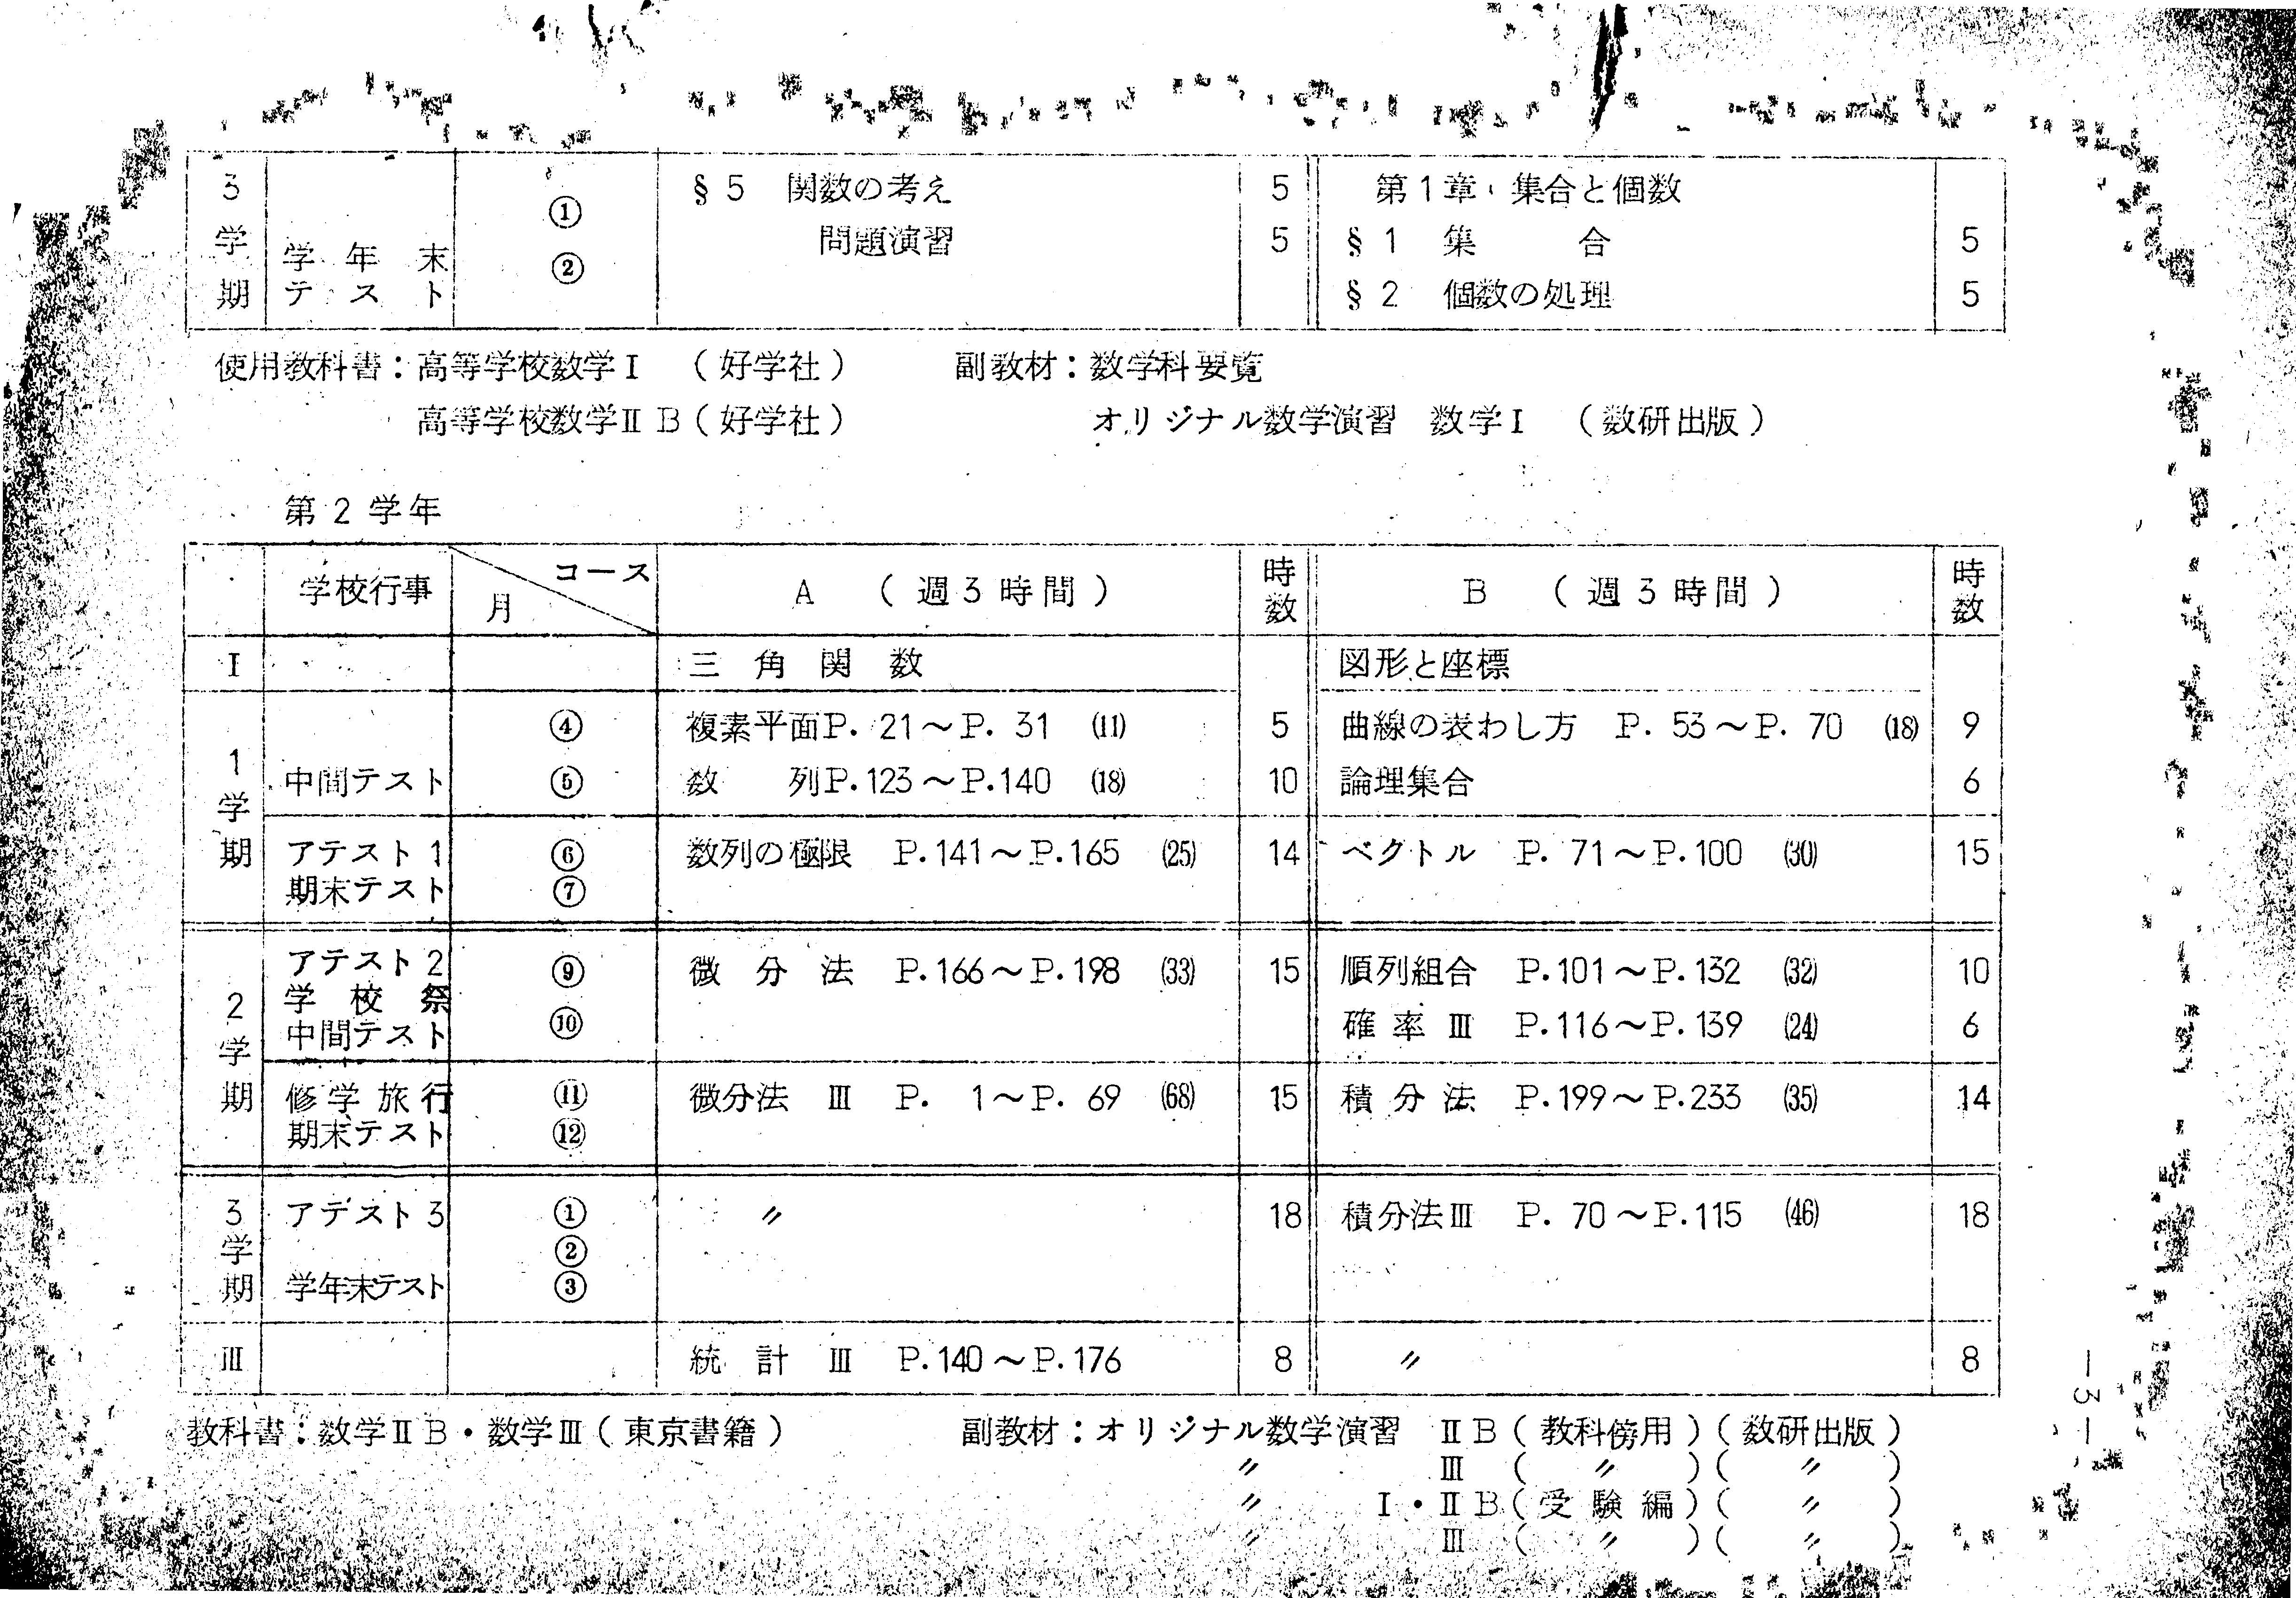 3学期 学年末テスト ① ② § 5 関数の考え 5 第1章 集合と個数
問題演習 5 § 1 集合 5
§ 2 個数の処理 5
使用教科書：高等学校数学Ⅰ （好学社） 副教材：数学科要覧
高等学校数学ⅡB（好学社） オリジナル数学演習 数学Ⅰ （数研出版）
第2学年
学校行事 月 コース A （週3時間） 時数 B （週3時間） 時数
Ⅰ 三角関数 図形と座標
1学期 ④ 複素平面P. 21～P. 31 (11) 5 曲線の表わし方 P. 53～P. 70 (18) 9
中間テスト ⑤ 数列P.123～P.140 (18) 10 論理集合 6
アテスト1 ⑥ 数列の極限 P.141～P.165 (25) 14 ベクトル P. 71～P.100 (30) 15
期末テスト ⑦
2学期 アテスト2 ⑨ 微分法 P.166～P.198 (33) 15 順列組合 P.101～P.132 (32) 10
学校祭
中間テスト ⑩ 確率Ⅲ P.116～P.139 (24) 6
修学旅行 ⑪ 微分法 Ⅲ P. 1～P. 69 (68) 15 積分法 P.199～P.233 (35) 14
期末テスト ⑫
3学期 アテスト3 ① 〃 18 積分法Ⅲ P. 70～P.115 (46) 18
②
学年末テスト ③
Ⅲ 統計 Ⅲ P.140～P.176 8 〃 8
教科書：数学ⅡB・数学Ⅲ（東京書籍） 副教材：オリジナル数学演習 ⅡB（教科傍用）（数研出版）
〃 Ⅲ （〃）（〃）
〃 Ⅰ・ⅡB（受験編）（〃）
〃 Ⅲ （〃）（〃）
―3―